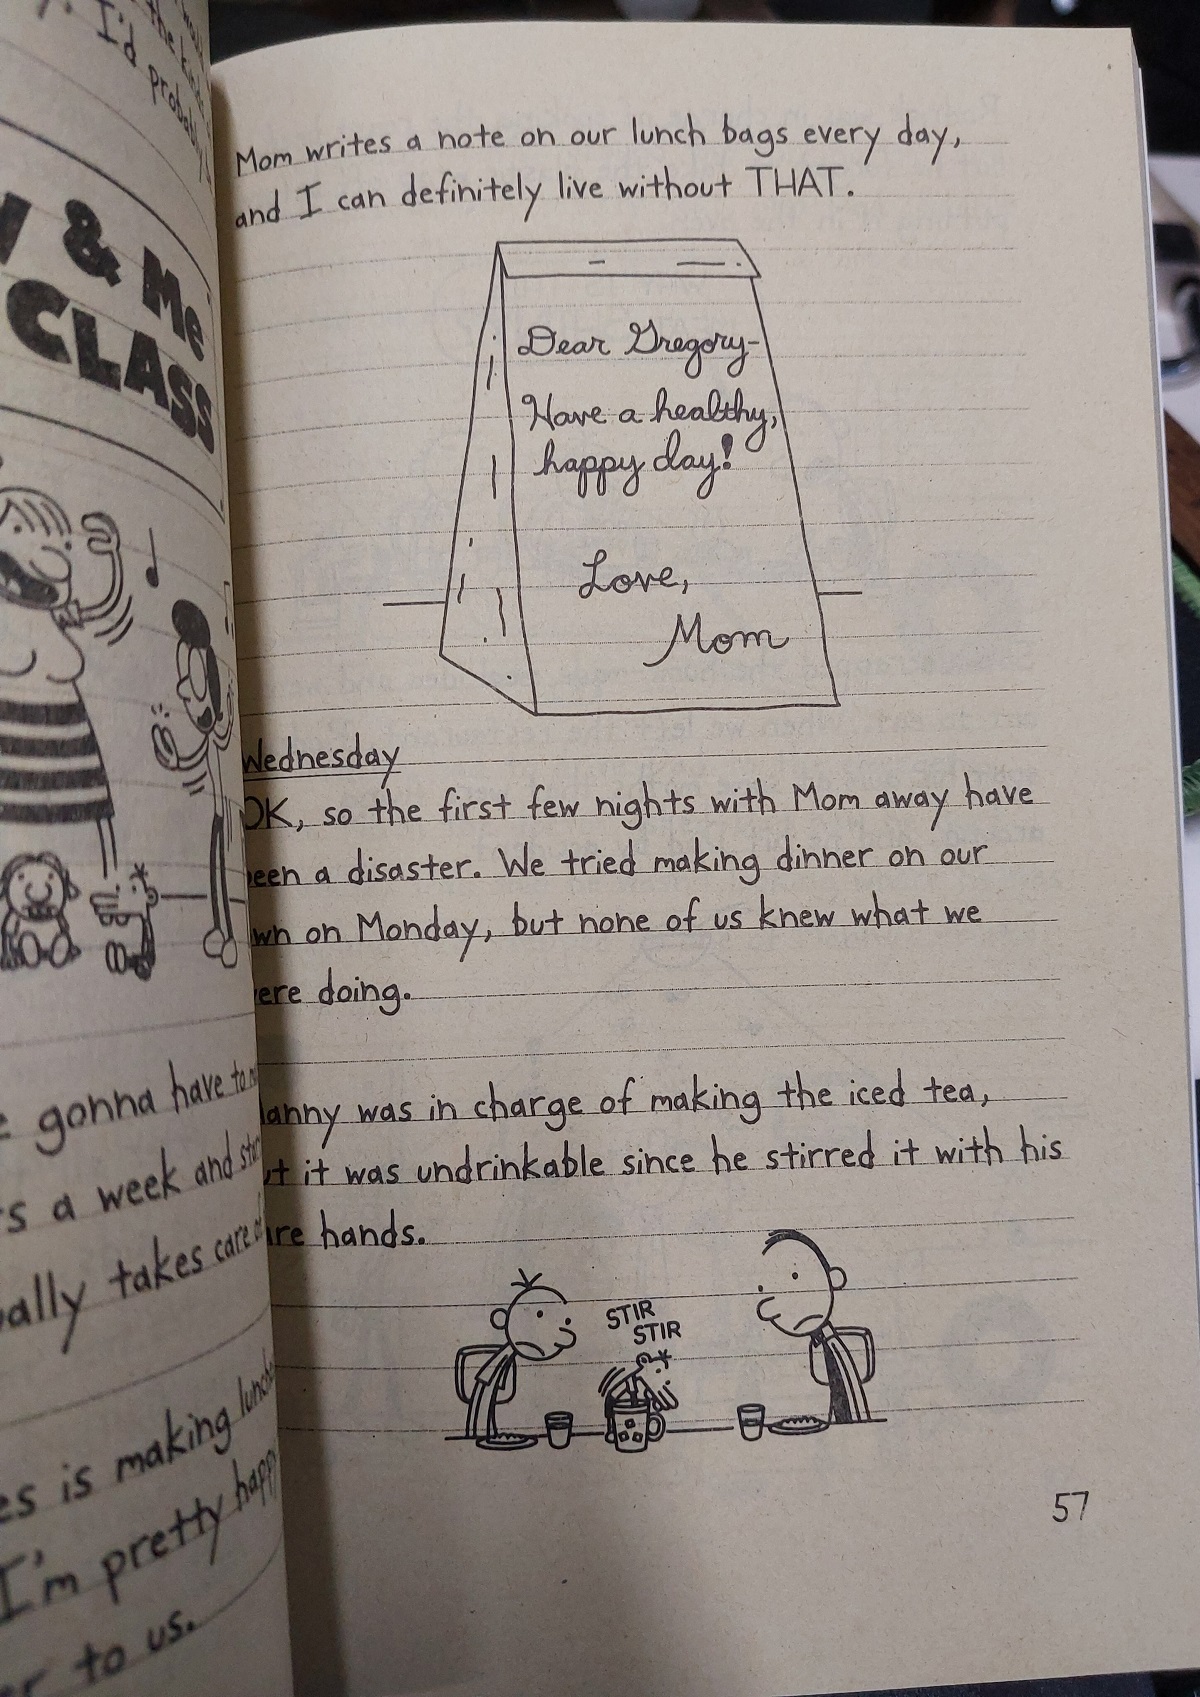 I'd
& Me
CLASS
gonna have to
a week and
takes care
is making
I'm pretty
to us.
Mom writes a note on our lunch bags every day,
and I can definitely live without THAT.
Dear Gregory-
Have a healthy,
happy day!
Love,
Mom
Wednesday
OK, so the first few nights with Mom away have
een a disaster. We tried making dinner on our
wn on Monday, but none of us knew what we
ere doing.
anny was in charge of making the iced tea,
it was undrinkable since he stirred it with his
hands.
STIR
STIR
57